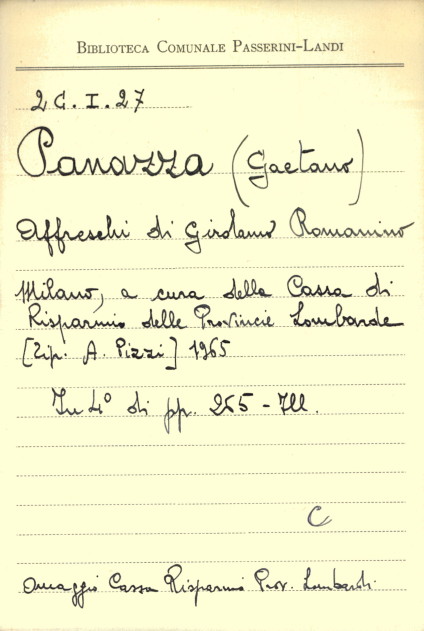 BIBLIOTECA COMUNALE PASSERINI-LANDI
2 C. I. 27
Panazza (Gaetano)
Affreschi di Girolamo Romanino
Milano, a cura della Cassa di
Risparmio delle Provincie Lombarde
[Tip. A. Pizzi] 1965
In 4° di pp. 265 - 
C
Omaggio Cassa Risparmio Prov. Lombarde